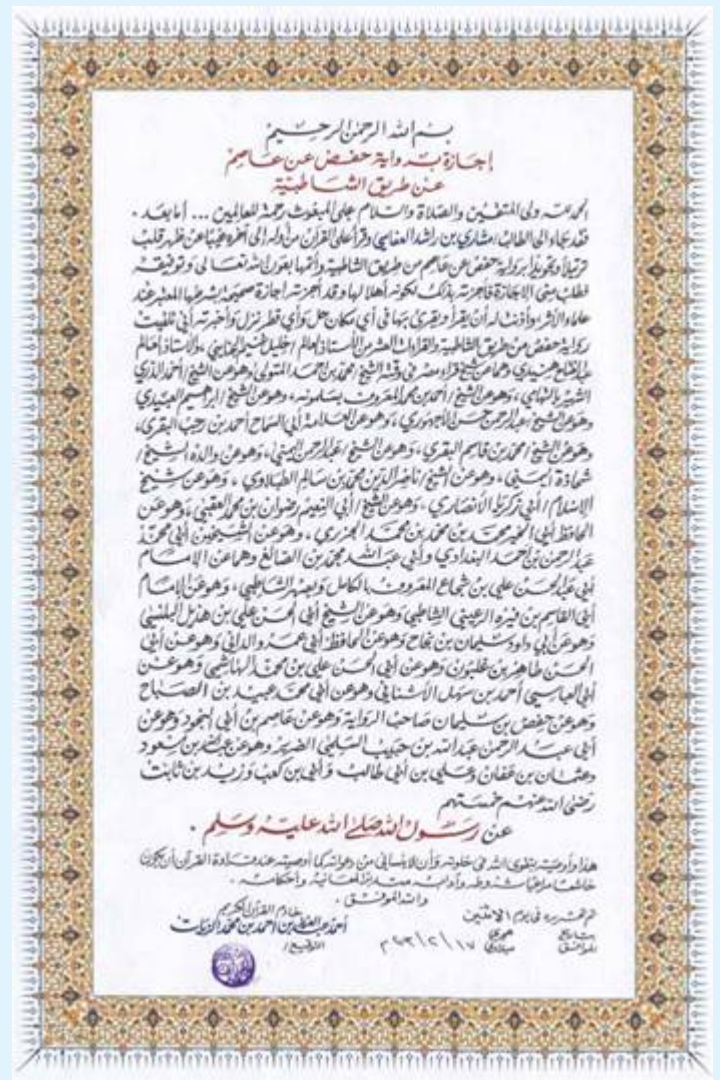 بسم الله الرحمن الرحيم
إجازة برواية حفص عن عاصم
عن طريق الشاطبية
الحمد لله ولي المتقين والصلاة والسلام على المبعوث رحمة للعالمين ... أما بعد .
فقد جاء الى الطالب / مشاري بن راشد العفاسي وقرأ على القرآن من أوله الى آخره غيبًا عن ظهر قلب
ترتيلاً وتجويداً برواية حفص عن عاصم من طريق الشاطبية وأتمها بعون الله تعالى وتوفيقه
فطلب مني الاجازة فأجزته بذلك لكونه أهلا لها وقد أجزته اجازة صحيحة بشرطها المعتبر عند
علماء الأثر وأذنت له أن يقرأ ويقرئ بها في أي مكان حل وأي قطر نزل وأخبرته أني تلقيت
رواية حفص من طريق الشاطبية والقراءات العشر من الأستاذ العالم / خليل غنيم الجنايني ، والاستاذ العالم
عبد الفتاح هنيدي وهما عن شيخ قراء مصر في وقته الشيخ محمد بن احمد المتولى وهو عن الشيخ / أحمد الدري
الشهير بالتهامي ، وهو عن الشيخ / أحمد بن محمد المعروف بسلمونه ، وهو عن الشيخ / ابراهيم العبيدي
وهو عن الشيخ / عبد الرحمن حسن الأجهوري ، وهو عن العلامة أبي السماح أحمد بن رجب البقري ،
وهو عن الشيخ / محمد بن قاسم البقري ، وهو عن الشيخ / عبد الرحمن اليمني ، وهو عن والده الشيخ /
شحاذة اليمني ، وهو عن الشيخ / ناصر الدين محمد بن سالم الطبلاوي ، وهو عن شيخ
الاسلام / أبي زكريا الأنصاري ، وهو عن الشيخ / أبي النعيم رضوان بن محمد العقبي ، وهو عن
الحافظ أبي الخير محمد بن محمد بن محمد الجزري ، وهو عن الشيخين أبي محمد
عبد الرحمن بن أحمد البغدادي وأبي عبد الله محمد بن الصائغ وهما عن الامام
أبي عبد الله الحسن علي بن شجاع المعروف بالكامل وبصهر الشاطبي ، وهو عن الامام
أبي القاسم بن فيره الرعيني الشاطبي وهو عن الشيخ أبي الحسن علي بن هذيل البلنسي
وهو عن أبي داود سليمان بن نجاح وهو عن الحافظ أبي عمرو الداني وهو عن أبي
الحسن طاهر بن غلبون وهو عن أبي الحسن علي بن محمد الهاشمي وهو عن
أبي العباس أحمد بن سهل الأشناني وهو عن أبي محمد عبيد بن الصباح
وهو عن حفص بن سليمان صاحب الرواية وهو عن عاصم بن أبي النجود وهو عن
أبي عبد الرحمن عبد الله بن حبيب السلمي الضرير وهو عن عبد الله بن مسعود
وعثمان بن عفان وعلي بن أبي طالب وأبي بن كعب وزيد بن ثابت
رضى الله عنهم خمستهم
عن رسول الله صلى الله عليه وسلم .
هذا وأوصيه بتقوى الله في خلوته وأن لا ينساني من دعواته كما أوصيه عند قراءة القرآن أن يكون
خاشعا لمعانيه وأحكامه .
والله الموفق .
تم تحريره في يوم الاثنين
بتاريخ هجري
الموافق ميلادي
خادم القرآن الكريم
أحمد عبد العزيز بن احمد بن محمد الزيات
التوقيع /